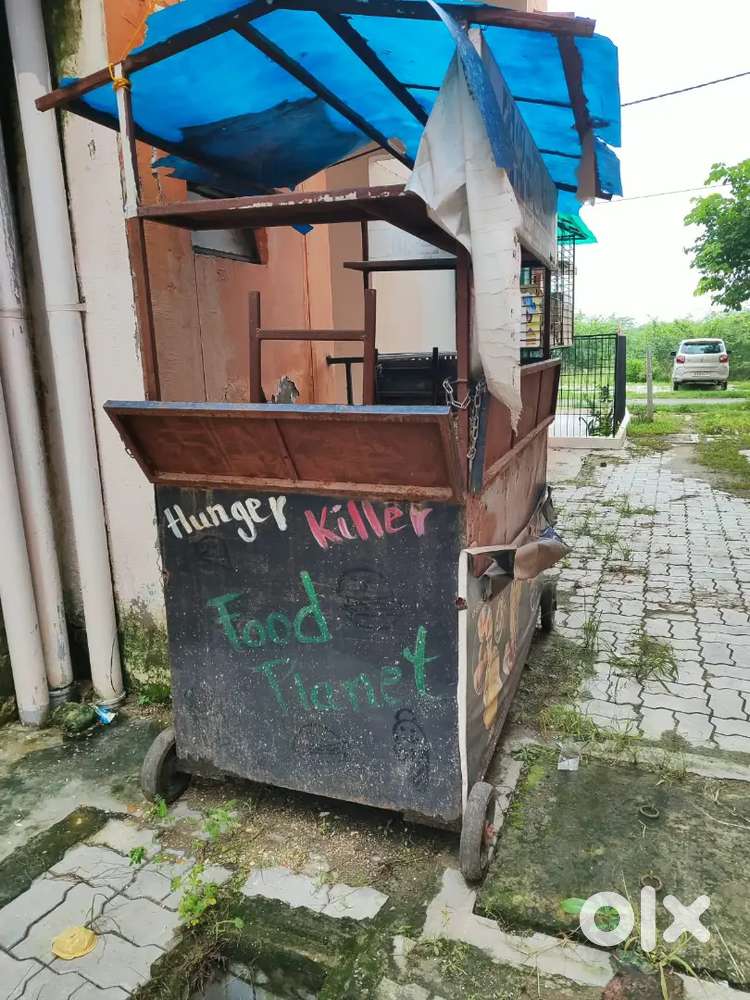 Hunger Killer
Food
Planet
olx